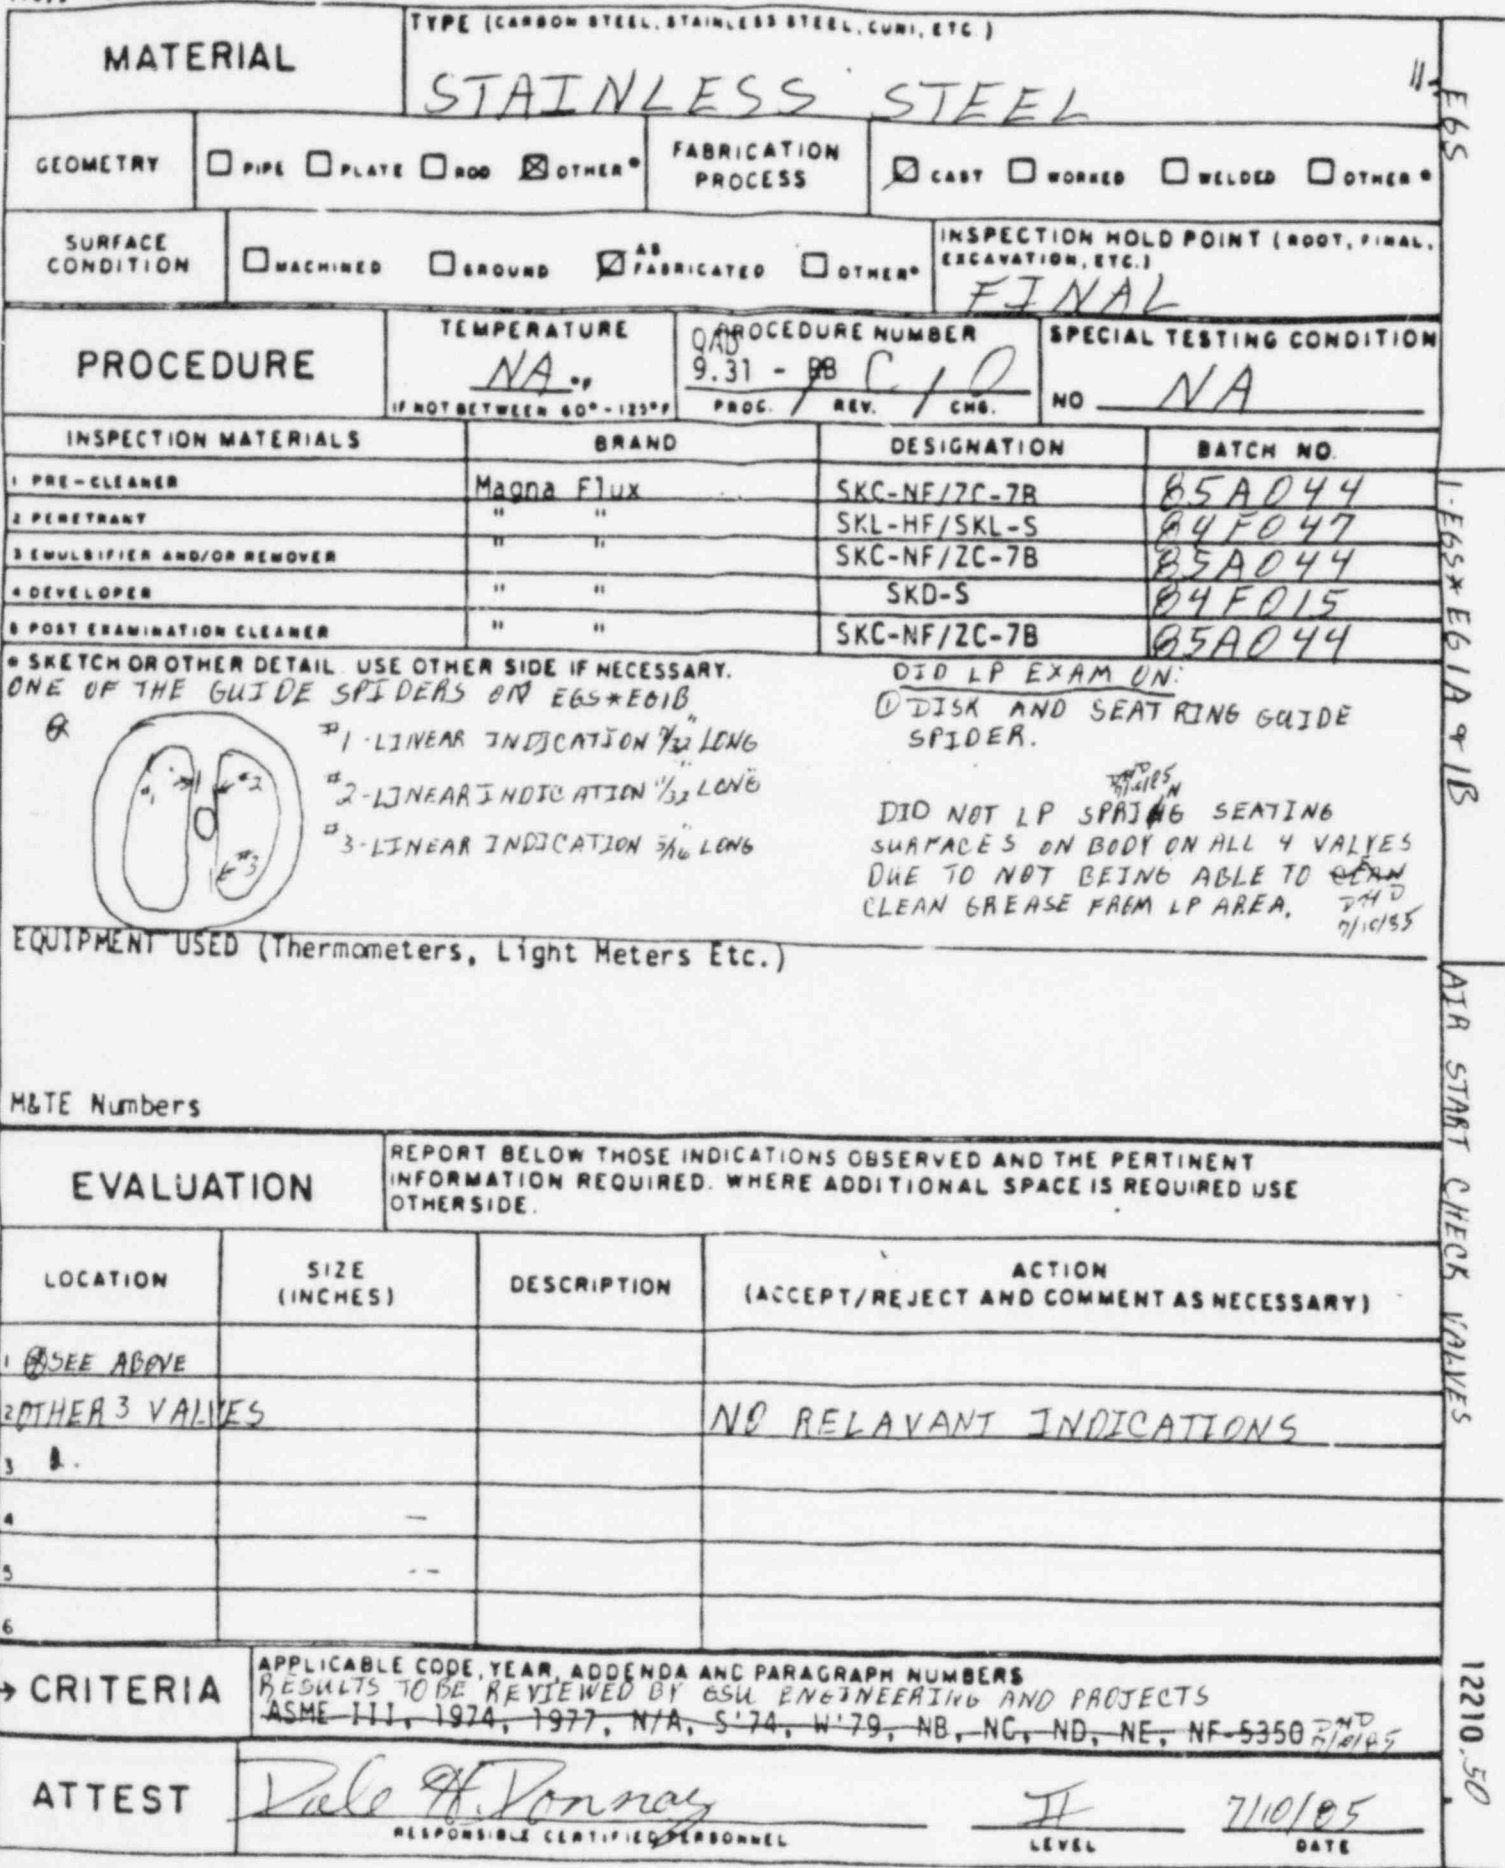 MATERIAL
TYPE (CARBON STEEL, STAINLESS STEEL, CUNI, ETC.)
STAINLESS STEEL
GEOMETRY
PIPE PLATE ROD OTHER*
FABRICATION PROCESS
CAST WORKED WELDED OTHER *
SURFACE CONDITION
MACHINED GROUND AS FABRICATED OTHER*
INSPECTION HOLD POINT (ROOT, FINAL, EXCAVATION, ETC.)
FINAL
PROCEDURE
TEMPERATURE
NA °F
IF NOT BETWEEN 60° - 125°F
PROCEDURE NUMBER
QAD
9.31 - C / 0
PROC. / REV. / CHG.
SPECIAL TESTING CONDITION
NO NA
INSPECTION MATERIALS BRAND DESIGNATION BATCH NO.
1 PRE-CLEANER Magna Flux SKC-NF/ZC-7B 85A044
2 PENETRANT " " SKL-HF/SKL-S 84F047
3 EMULSIFIER AND/OR REMOVER " " SKC-NF/ZC-7B 85A044
4 DEVELOPER " " SKD-S 84F015
5 POST EXAMINATION CLEANER " " SKC-NF/ZC-7B 85A044
* SKETCH OR OTHER DETAIL. USE OTHER SIDE IF NECESSARY.
ONE OF THE GUIDE SPIDERS ON EGS*EG1B
#1
#2
#3
#1-LINEAR INDICATION 9/32" LONG
#2-LINEAR INDICATION 11/32" LONG
#3-LINEAR INDICATION 5/16" LONG
DID LP EXAM ON:
① DISK AND SEAT RING GUIDE
SPIDER.
DID NOT LP SPRING SEATING
SURFACES ON BODY ON ALL 4 VALVES
DUE TO NOT BEING ABLE TO CLEAN
CLEAN GREASE FROM LP AREA.
DHD
7/10/85
EQUIPMENT USED (Thermometers, Light Meters Etc.)
M&TE Numbers
EVALUATION
REPORT BELOW THOSE INDICATIONS OBSERVED AND THE PERTINENT
INFORMATION REQUIRED. WHERE ADDITIONAL SPACE IS REQUIRED USE
OTHERSIDE.
LOCATION
SIZE (INCHES)
DESCRIPTION
ACTION
(ACCEPT/REJECT AND COMMENT AS NECESSARY)
1 SEE ABOVE
2 OTHER 3 VALVES NO RELAVANT INDICATIONS
3
4
5
6
CRITERIA
APPLICABLE CODE, YEAR, ADDENDA AND PARAGRAPH NUMBERS
RESULTS TO BE REVIEWED BY GSU ENGINEERING AND PROJECTS
ASME III, 1974, 1977, N/A, S'74, W'79, NB, NC, ND, NE, NF-5350 DHD 7/10/85
ATTEST
Dale H. Donnay II 7/10/85
RESPONSIBLE CERTIFIED PERSONNEL LEVEL DATE
EGS
1-EGS*EG1A & 1B
AIR START CHECK VALVES
12210.50